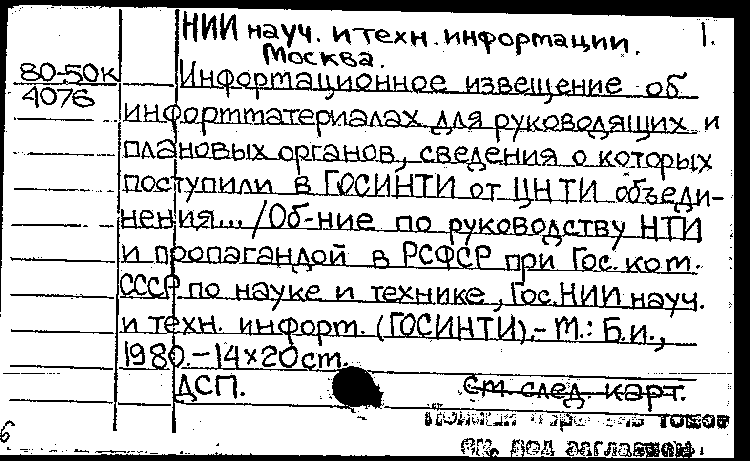 НИИ науч. и техн. информации. 1.
Москва.
80-50к Информационное извещение об
4076
информматериалах для руководящих и
плановых органов, сведения о которых
поступили в ГОСИНТИ от ЦНТИ объеди-
нения... /Об-ние по руководству НТИ
и пропагандой в РСФСР при Гос. ком.
СССР по науке и технике, Гос. НИИ науч.
и техн. информ. (ГОСИНТИ).- М.: Б.и.,
1980.-14×20см.
ДСП. См. след. карт.
томов
см. под заглавием.
6